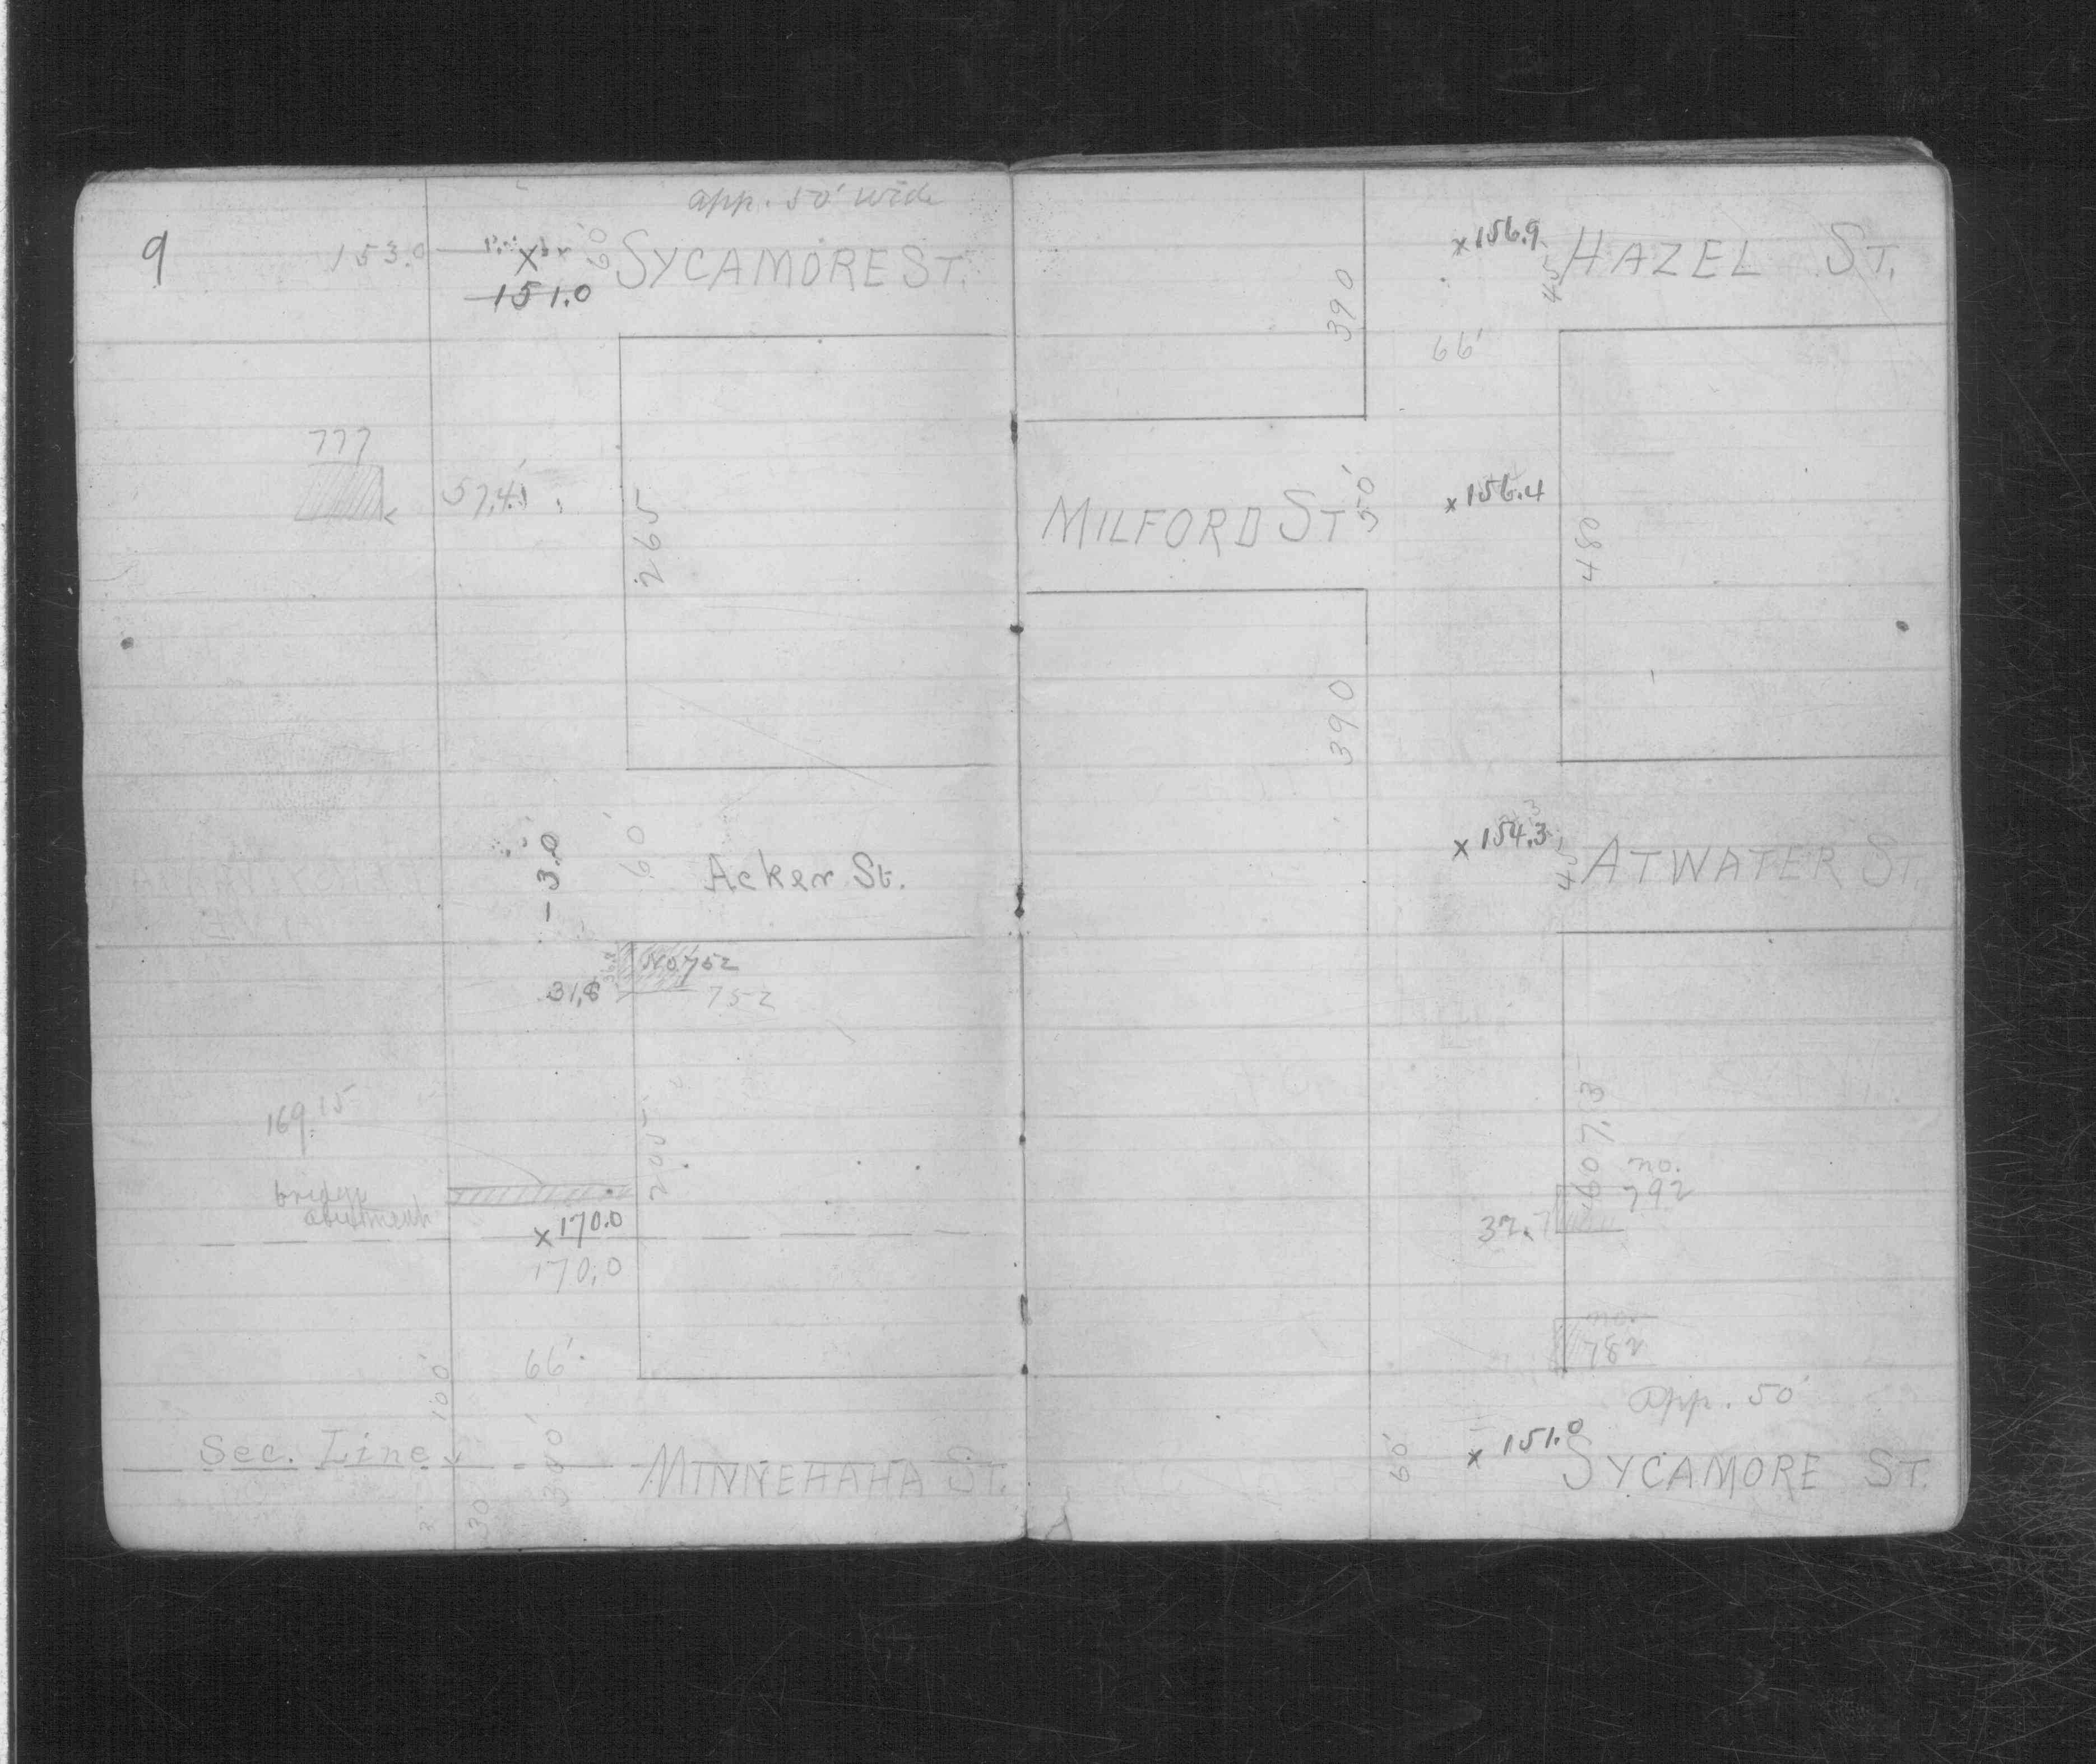 9
app. 50' wide
153.0
60'
SYCAMORE ST.
151.0
777
57.45
265
-3.0
60'
Acker St.
No. 752
31.8
752
169.15
205
bridge
abutment
170.0
170.0
66'
100'
Sec. Line
380'
MINNEHAHA ST.
30
390
156.9
45
HAZEL ST.
66'
MILFORD ST
50'
156.4
480
390
154.3
45
ATWATER ST.
607.3
no.
792
37.7
no.
782
app. 50'
60'
151.0
SYCAMORE ST.